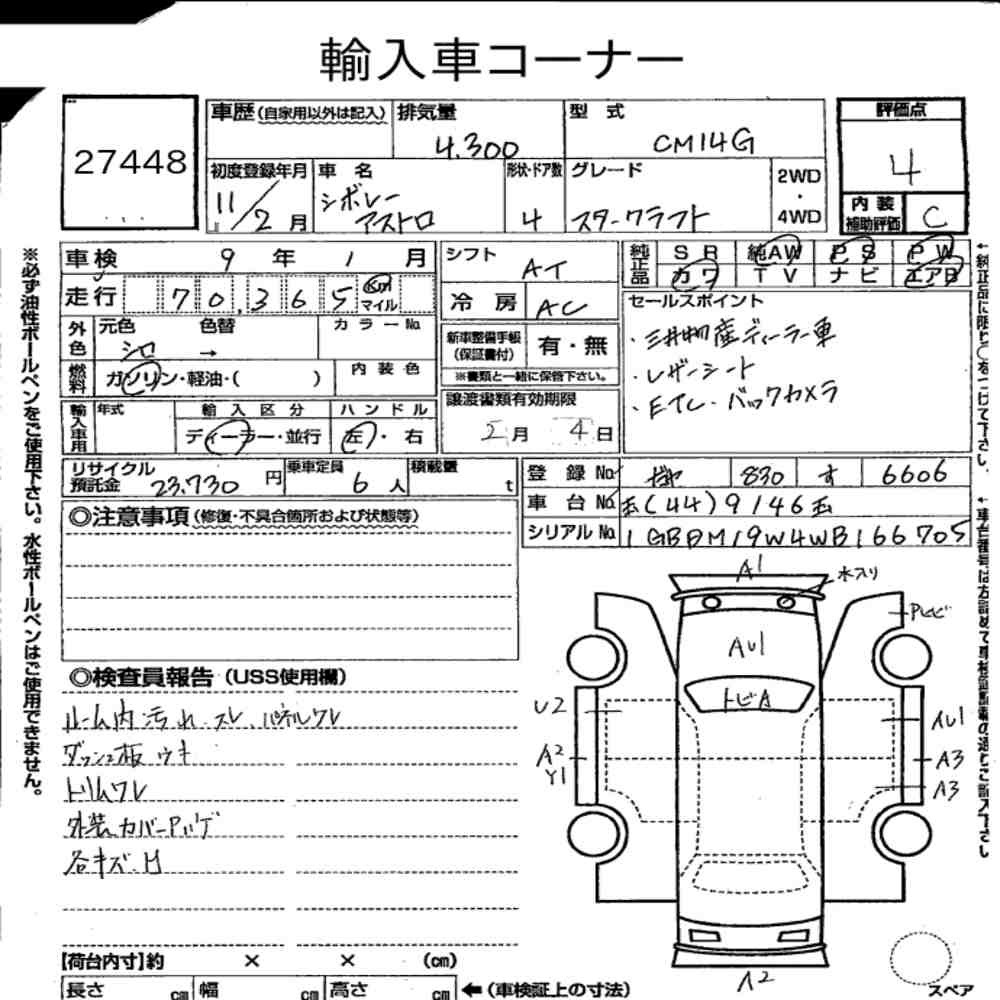 輸入車コーナー
27448
車歴 (自家用以外は記入)
排気量
4.300
型 式
CM14G
評価点
4
初度登録年月
11/2月
車 名
シボレー
アストロ
形状・ドア数
4
グレード
スタークラフト
2WD
・
4WD
内 装
補助評価
C
車検 9 年 1 月
走行 70,365 Km マイル
シフト AT
冷 房 AC
純正品 SR 純AW PS PW
カワ TV ナビ エアB
外色 元色 色替 カラーNo.
シロ →
燃料 ガソリン・軽油・( )
内装色
新車整備手帳
(保証書付)
有・無
※書類と一緒に保管下さい。
セールスポイント
・三井物産ディーラー車
・レザーシート
・ETC・バックカメラ
輸入車用 年式 輸入区分 ハンドル
ディーラー・並行 左・右
譲渡書類有効期限
2月 4日
リサイクル
預託金 23,730 円
乗車定員 6 人
積載量 t
登 録 No. 830 す 6606
車 台 No. (44)9146
シリアルNo. 1GBDM19W4WB166705
◎注意事項 (修復・不具合箇所および状態等)
◎検査員報告 (USS使用欄)
ルーム内汚れ.スレ.パネルワレ
ダッシュ板ウキ
トリムワレ
外装カバーPハゲ
各キズ.H
A1
水入り
Pトビ
AU1
トビA
U2
AU1
A2
Y1
A3
A3
A2
【荷台内寸】約 × × (cm)
長さ cm 幅 cm 高さ cm ←(車検証上の寸法)
スペア
※必ず油性ボールペンをご使用下さい。水性ボールペンはご使用できません。